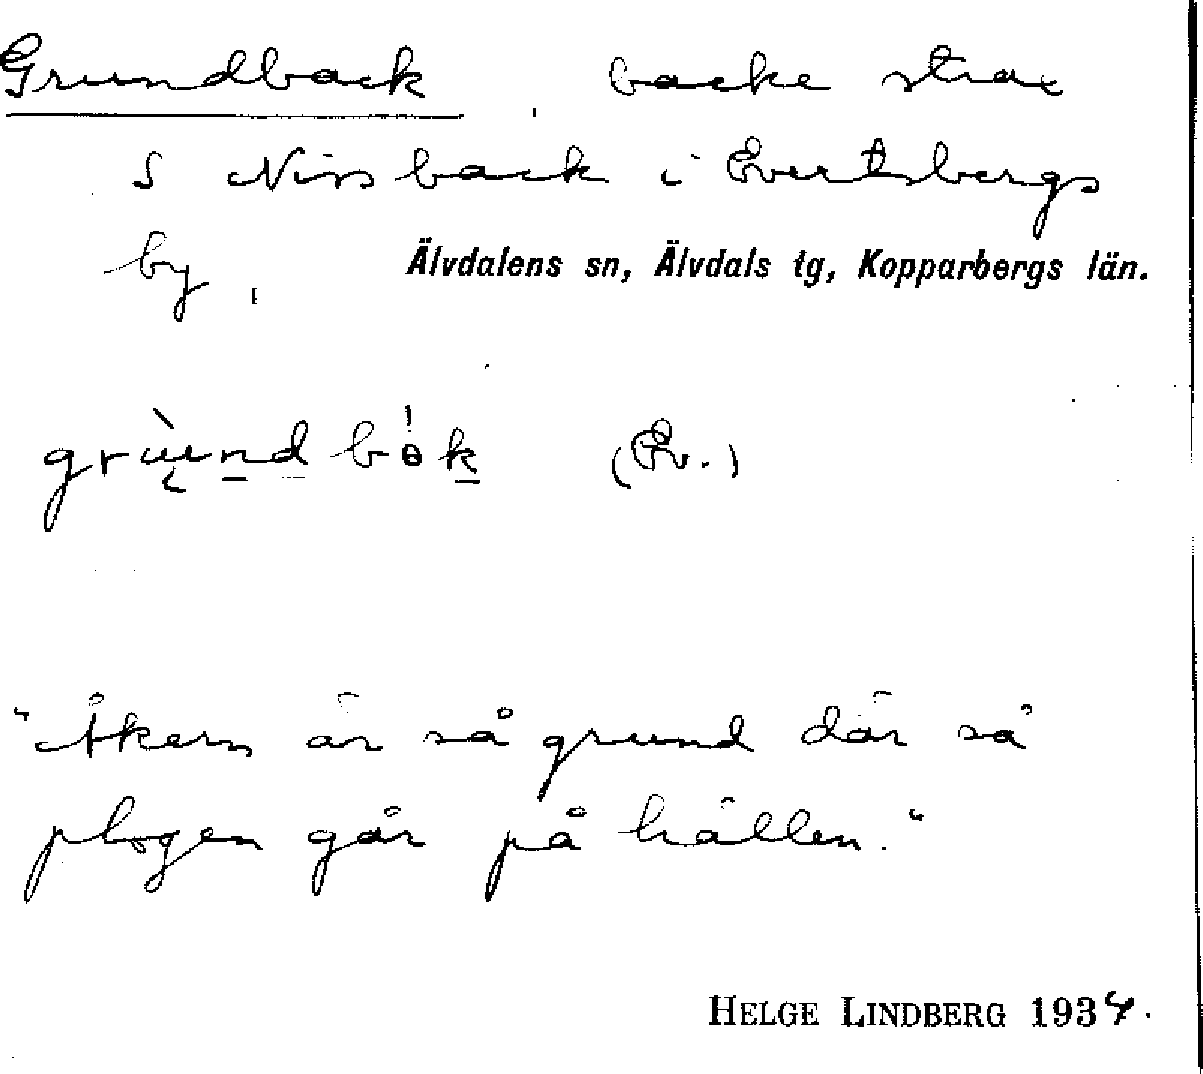 Grundback, backe strax
S Nissback i Evertsbergs
by.
Älvdalens sn, Älvdals tg, Kopparbergs län.
(Ev.)
"Åkern är så grund där så
plogen går på hällen."
HELGE LINDBERG 1934.